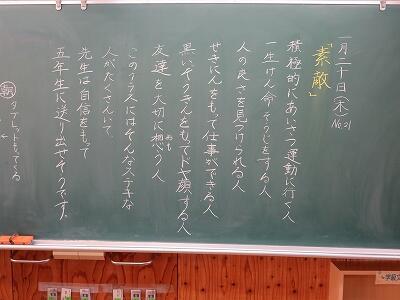 一月二十日(木)
No.21
「素敵」
積極的にあいさつ運動に行く人
一生けん命そうじをする人
人の良さを見つけられる人
せきにんをもって仕事ができる人
思いやり
友達を大切に想う人
このクラスにはそんなステキな
人がたくさんいて、
先生は自信をもって
五年生に送り出せそうです。
朝
タブレットもってくる